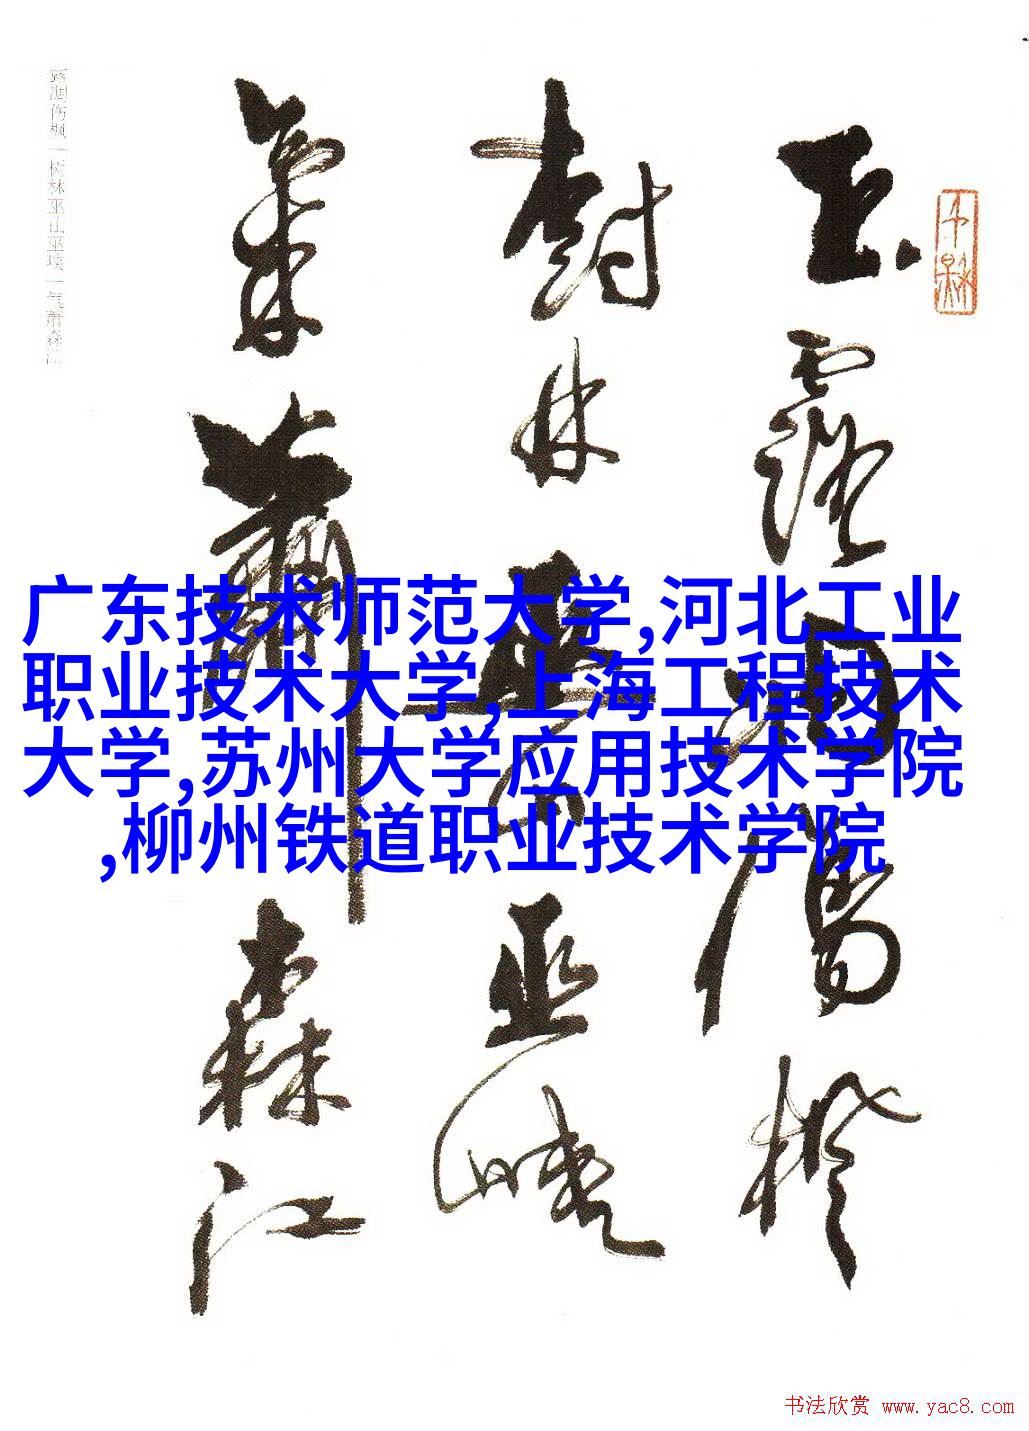 玉露凋傷楓
樹林巫山巫峽
氣蕭森江
广东技术师范大学,河北工业
职业技术大学,上海工程技术
大学,苏州大学应用技术学院
,柳州铁道职业技术学院
书法欣赏 www.yac8.com